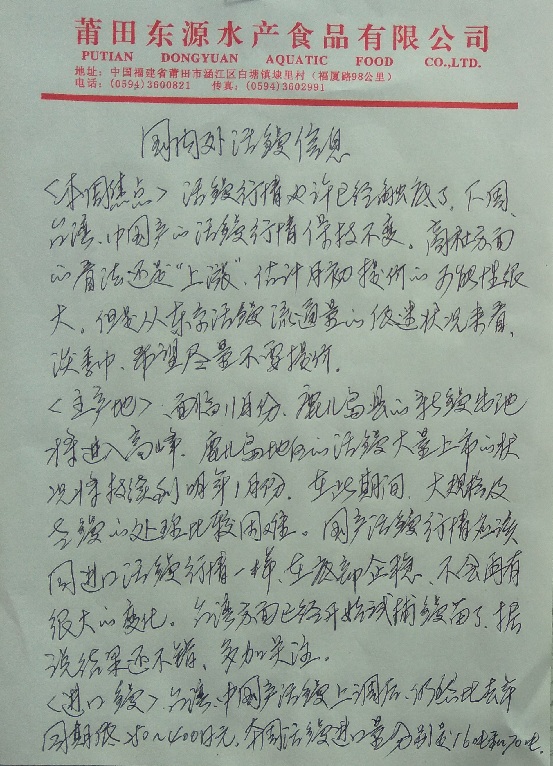 莆田东源水产食品有限公司
PUTIAN DONGYUAN AQUATIC FOOD CO.,LTD.
地址：中国福建省莆田市涵江区白塘镇埭里村（福厦路98公里）
电话：(0594)3600821 传真：(0594)3602991
国内外活鳗信息
<本周焦点> 活鳗行情也许已经触底了。下周、
台湾、中国产的活鳗行情保持不变。商社方面
的看法还是“上涨”，估计月初提价的可能性很
大。但是从东京活鳗流通量的低迷状况来看，
淡季中、希望尽量不要提价。
<主产地>、面临11月份、鹿儿岛县的新鳗出池
将进入高峰。鹿儿岛地区的活鳗大量上市的状
况将持续到明年1月份。在此期间、大规格及
冬鳗的处理比较困难。国产活鳗行情应该
同进口活鳗行情一样、在底部企稳、不会再有
很大的变化。台湾方面已经开始试捕鳗苗了、据
说结果还不错、多加关注。
<进口鳗>、台湾、中国产活鳗上调后、仍然比去年
同期低 ~400日元。本周活鳗进口量分别是16吨和70吨。